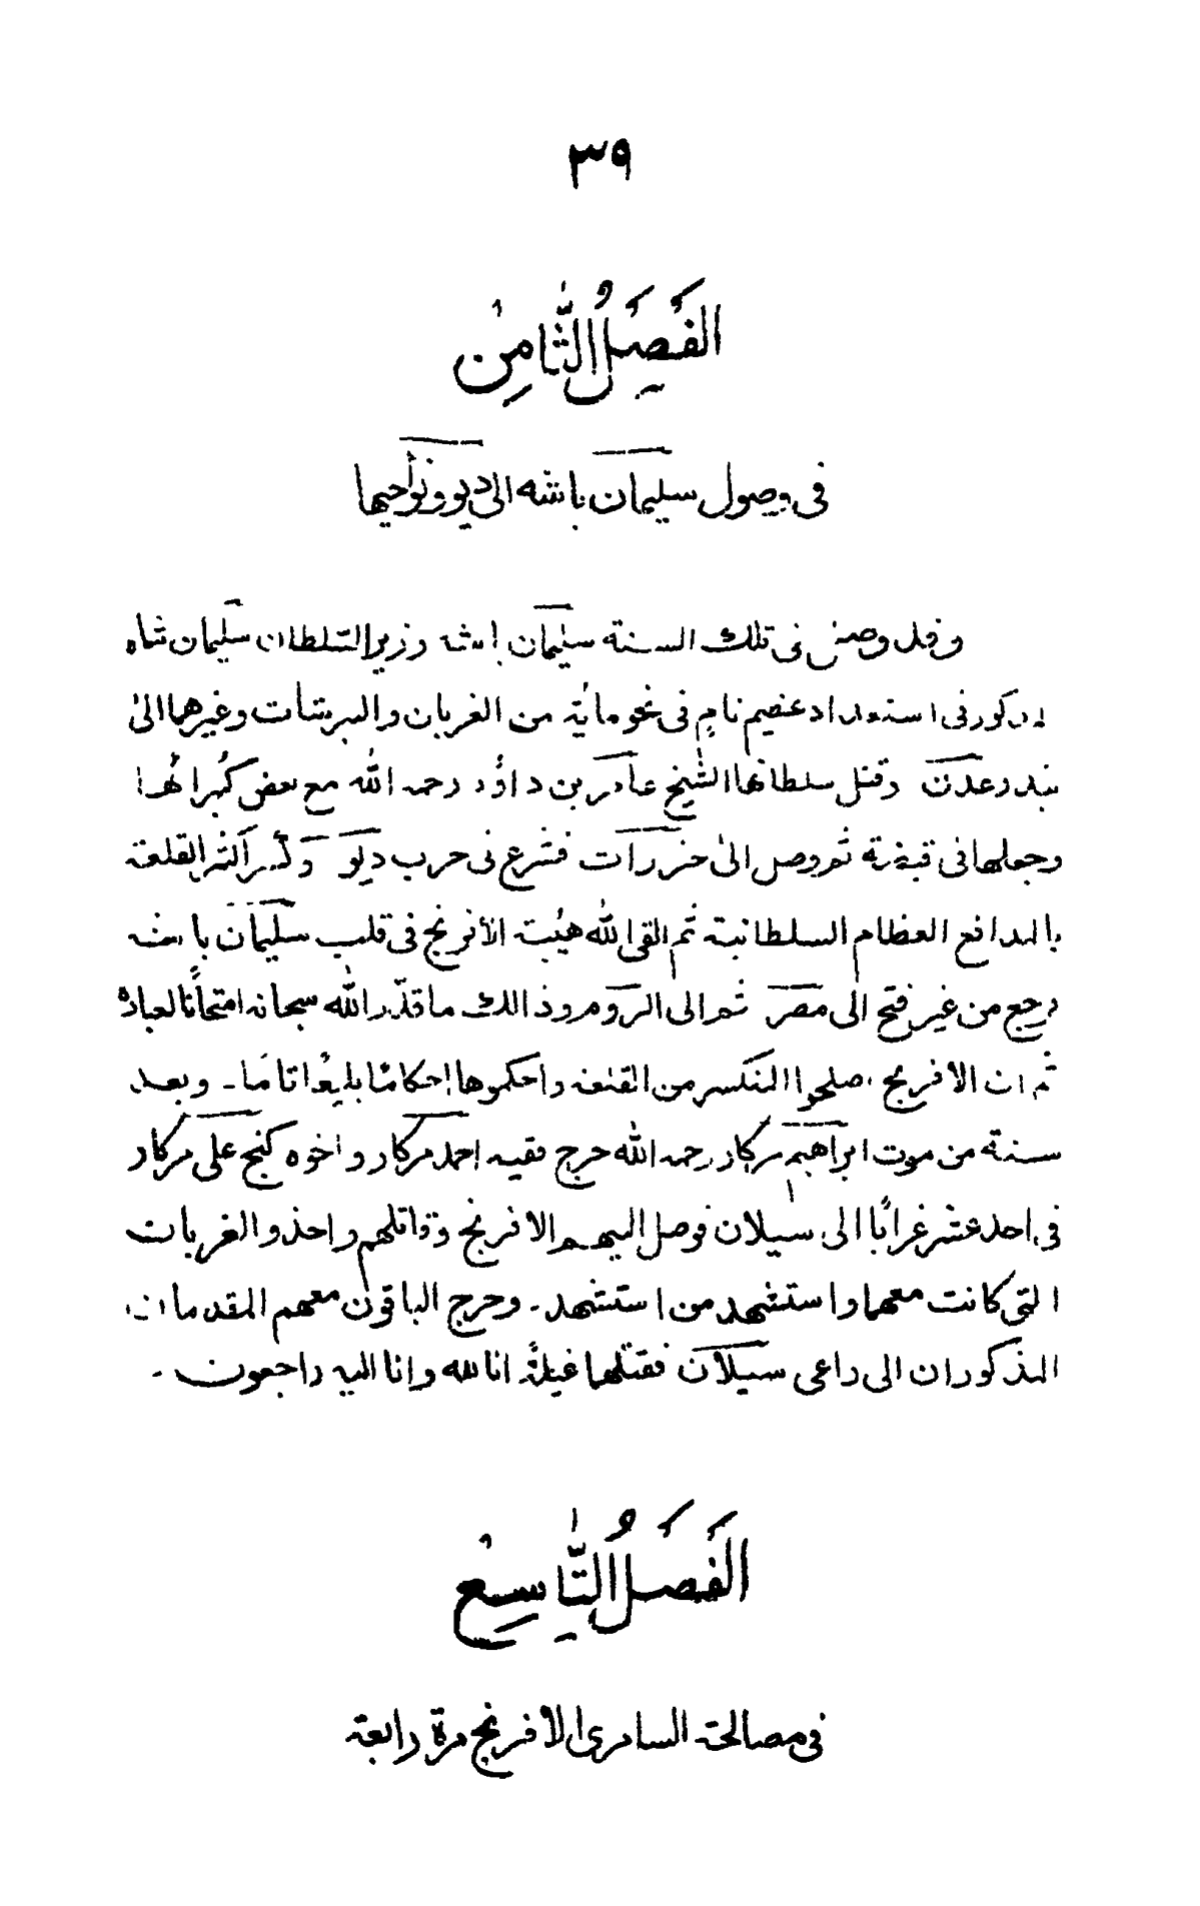 ٣٩
الفَصِلُ الثَّامِنْ
فى وصول سليمان باشه الى ديو ونواحيها
وقد وصل فى تلك السنة سليمان باشه وزير السلطان سليمان شاه
المذكور فى استعداد عظيم تام فى نحو مائة من الغربان والبرشات وغيرهما الىٰ
بندر عدن وقتل سلطانها الشيخ عامر بن داؤد رحمه الله مع بعض كُبرائها
وجعلها فى قبضته ثم وصل الىٰ جزرات فشرع فى حرب ديو وكسر اكثر القلعة
بالمدافع العظام السلطانية ثم القى الله هيبة الأفرنج فى قلب سليمان باشه
رجع من غير فتح الى مصر ثم الى الروم وذالك ما قدّر الله سبحانه امتحانًا لعباده
ثم ان الافرنج اصلحوا المنكسر من القلعة واحكموها إحكامًا بليغًا تامًا ـ وبعد
سنة من موت ابراهيم مركار رحمه الله خرج فقيه احمد مركار واخوه كنج على مركار
فى احد عشر غرابًا الى سيلان فوصل اليهم الافرنج وقاتلهم واخذوا لغربات
التى كانت معهما واستشهد من استشهد ـ وخرج الباقون معهم المقدمان
المذكوران الى راعى سيلان فقتلهما غيلةً انا لله وانا اليه راجعون ـ
الفَصَلُ التَّاسِعْ
فى مصالحة السامرى الافرنج مرة رابعة